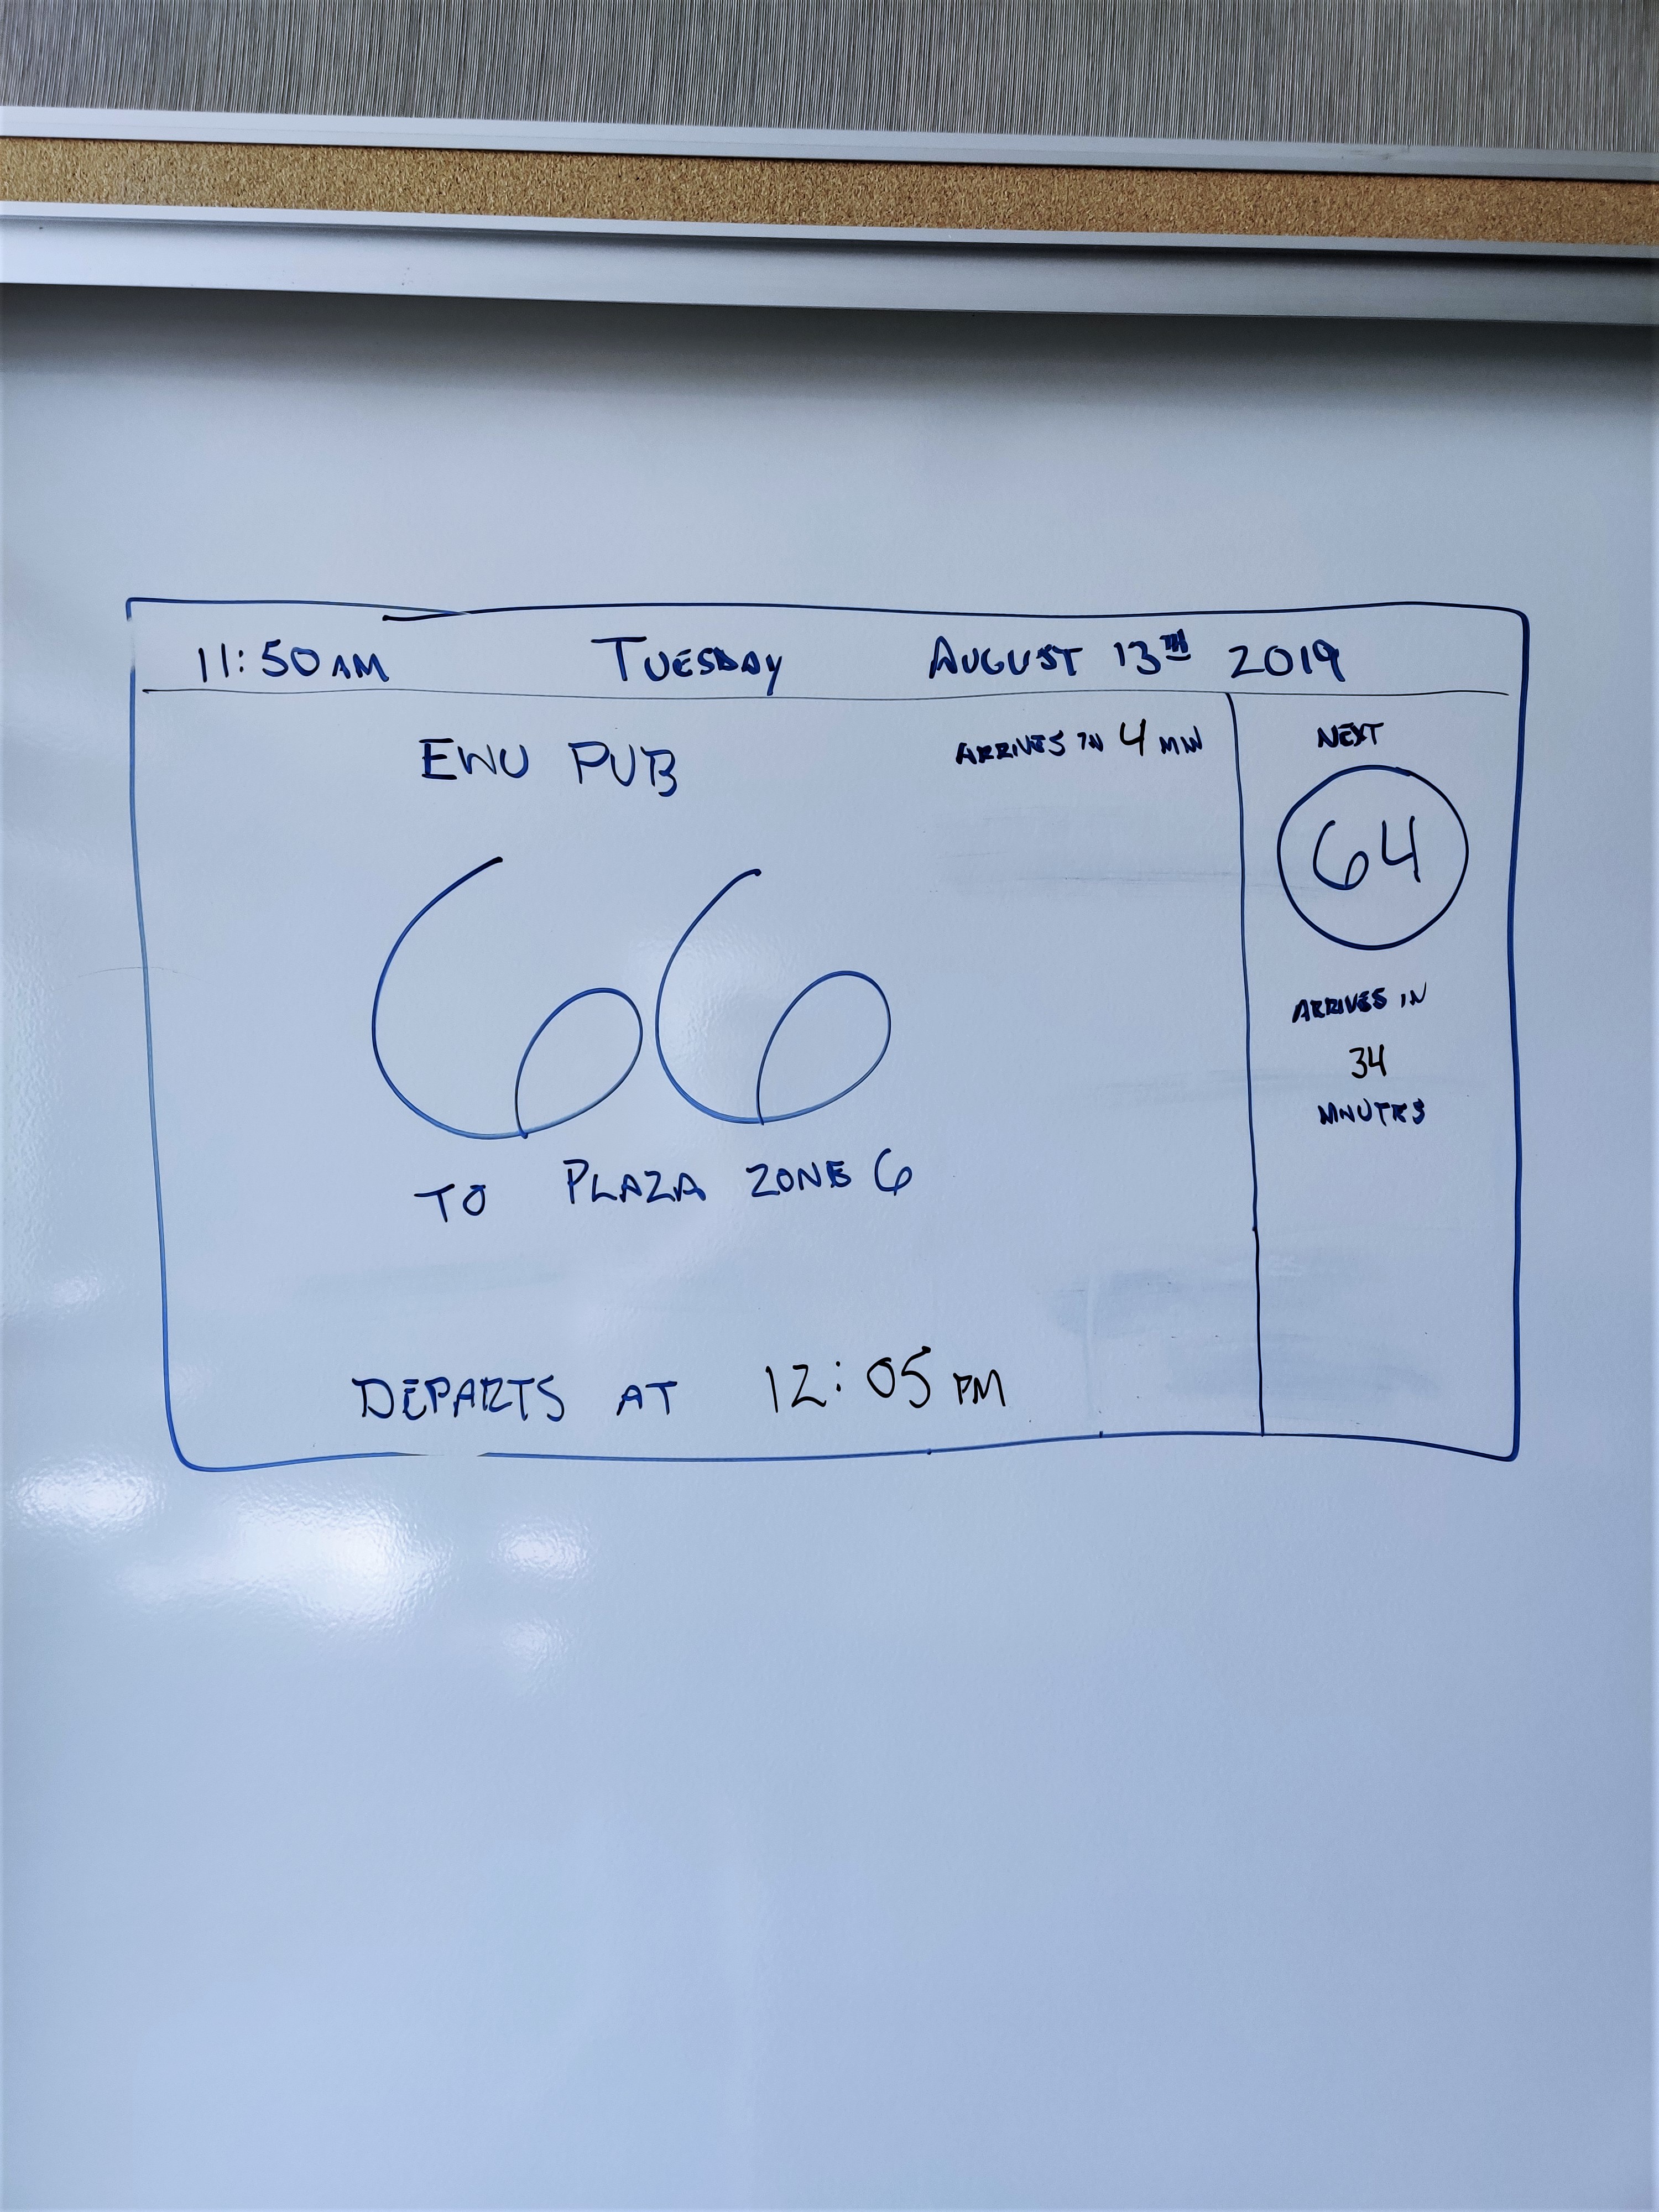 11:50 AM TUESDAY AUGUST 13TH 2019
EWU PUB
ARRIVES IN 4 MIN
66
TO PLAZA ZONE 6
DEPARTS AT 12:05 PM
NEXT
64
ARRIVES IN
34
MINUTES